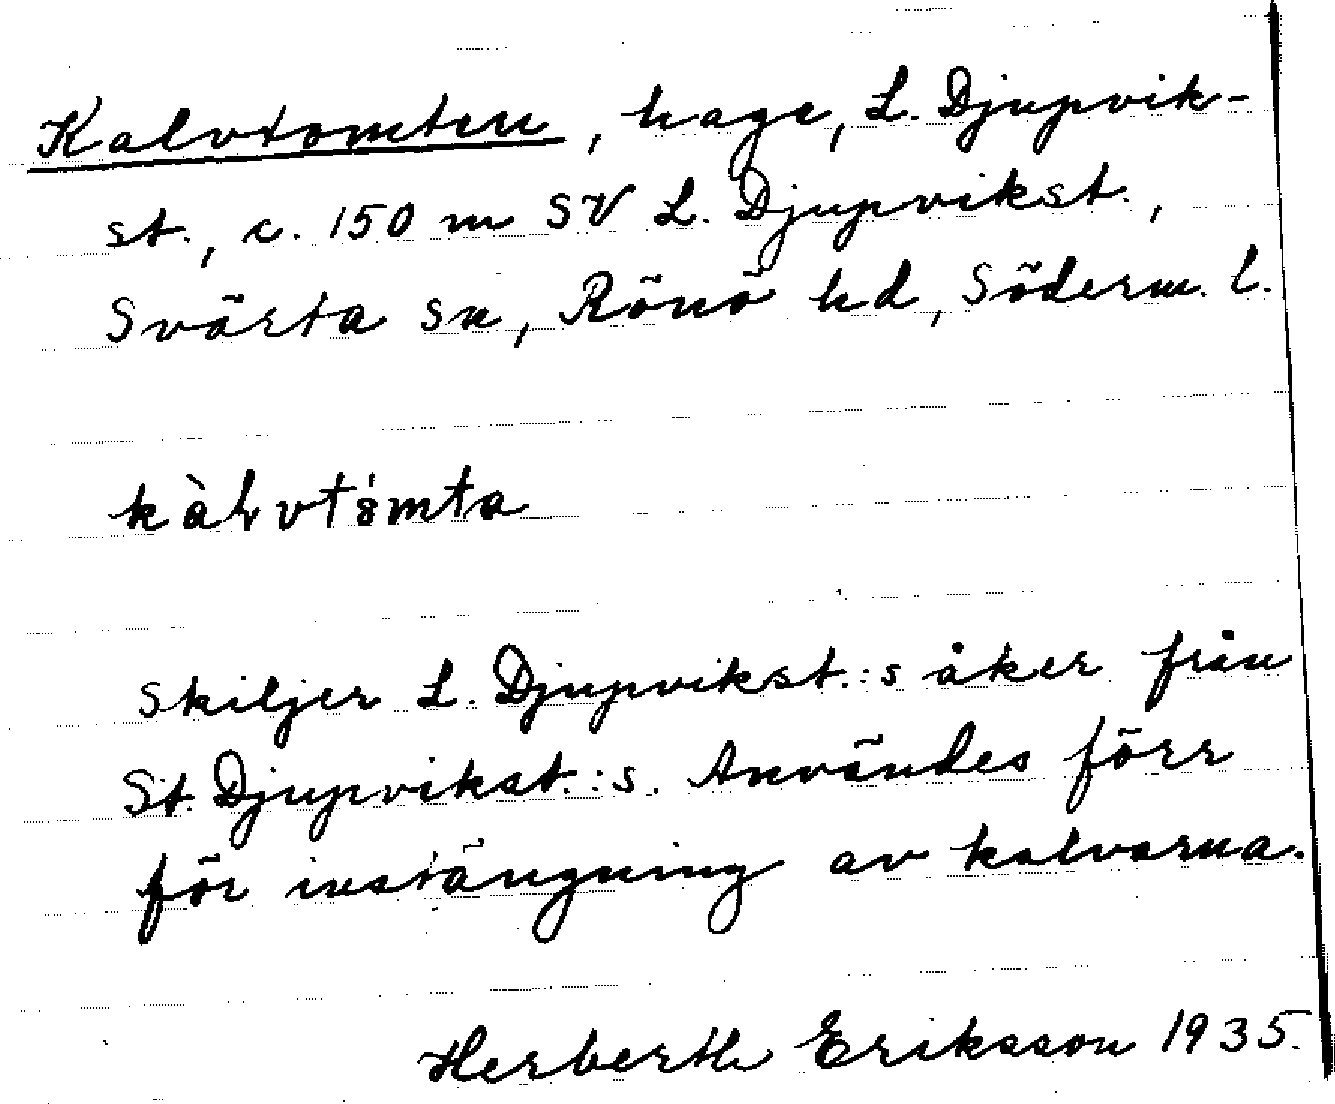 Kalvtomten, hage, L. Djupvik-
st., c. 150 m SV L. Djupvikst.,
Svärta sn, Rönö hd, Söderm. l.
kàlvtómta
Skiljer L. Djupvikst.:s åker från
St. Djupvikst.:s. Användes förr
för instängning av kalvarna.
Herberth Eriksson 1935.